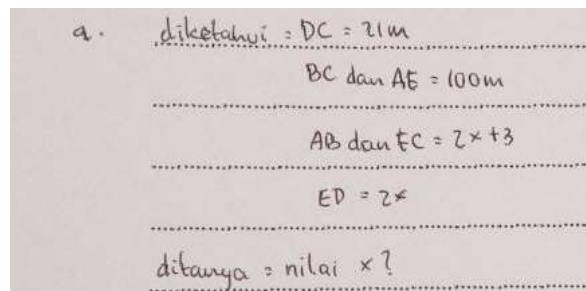 a. diketahui : DC = 21m
BC dan AE = 100m
AB dan EC = 2x+3
ED = 2x
ditanya : nilai x?